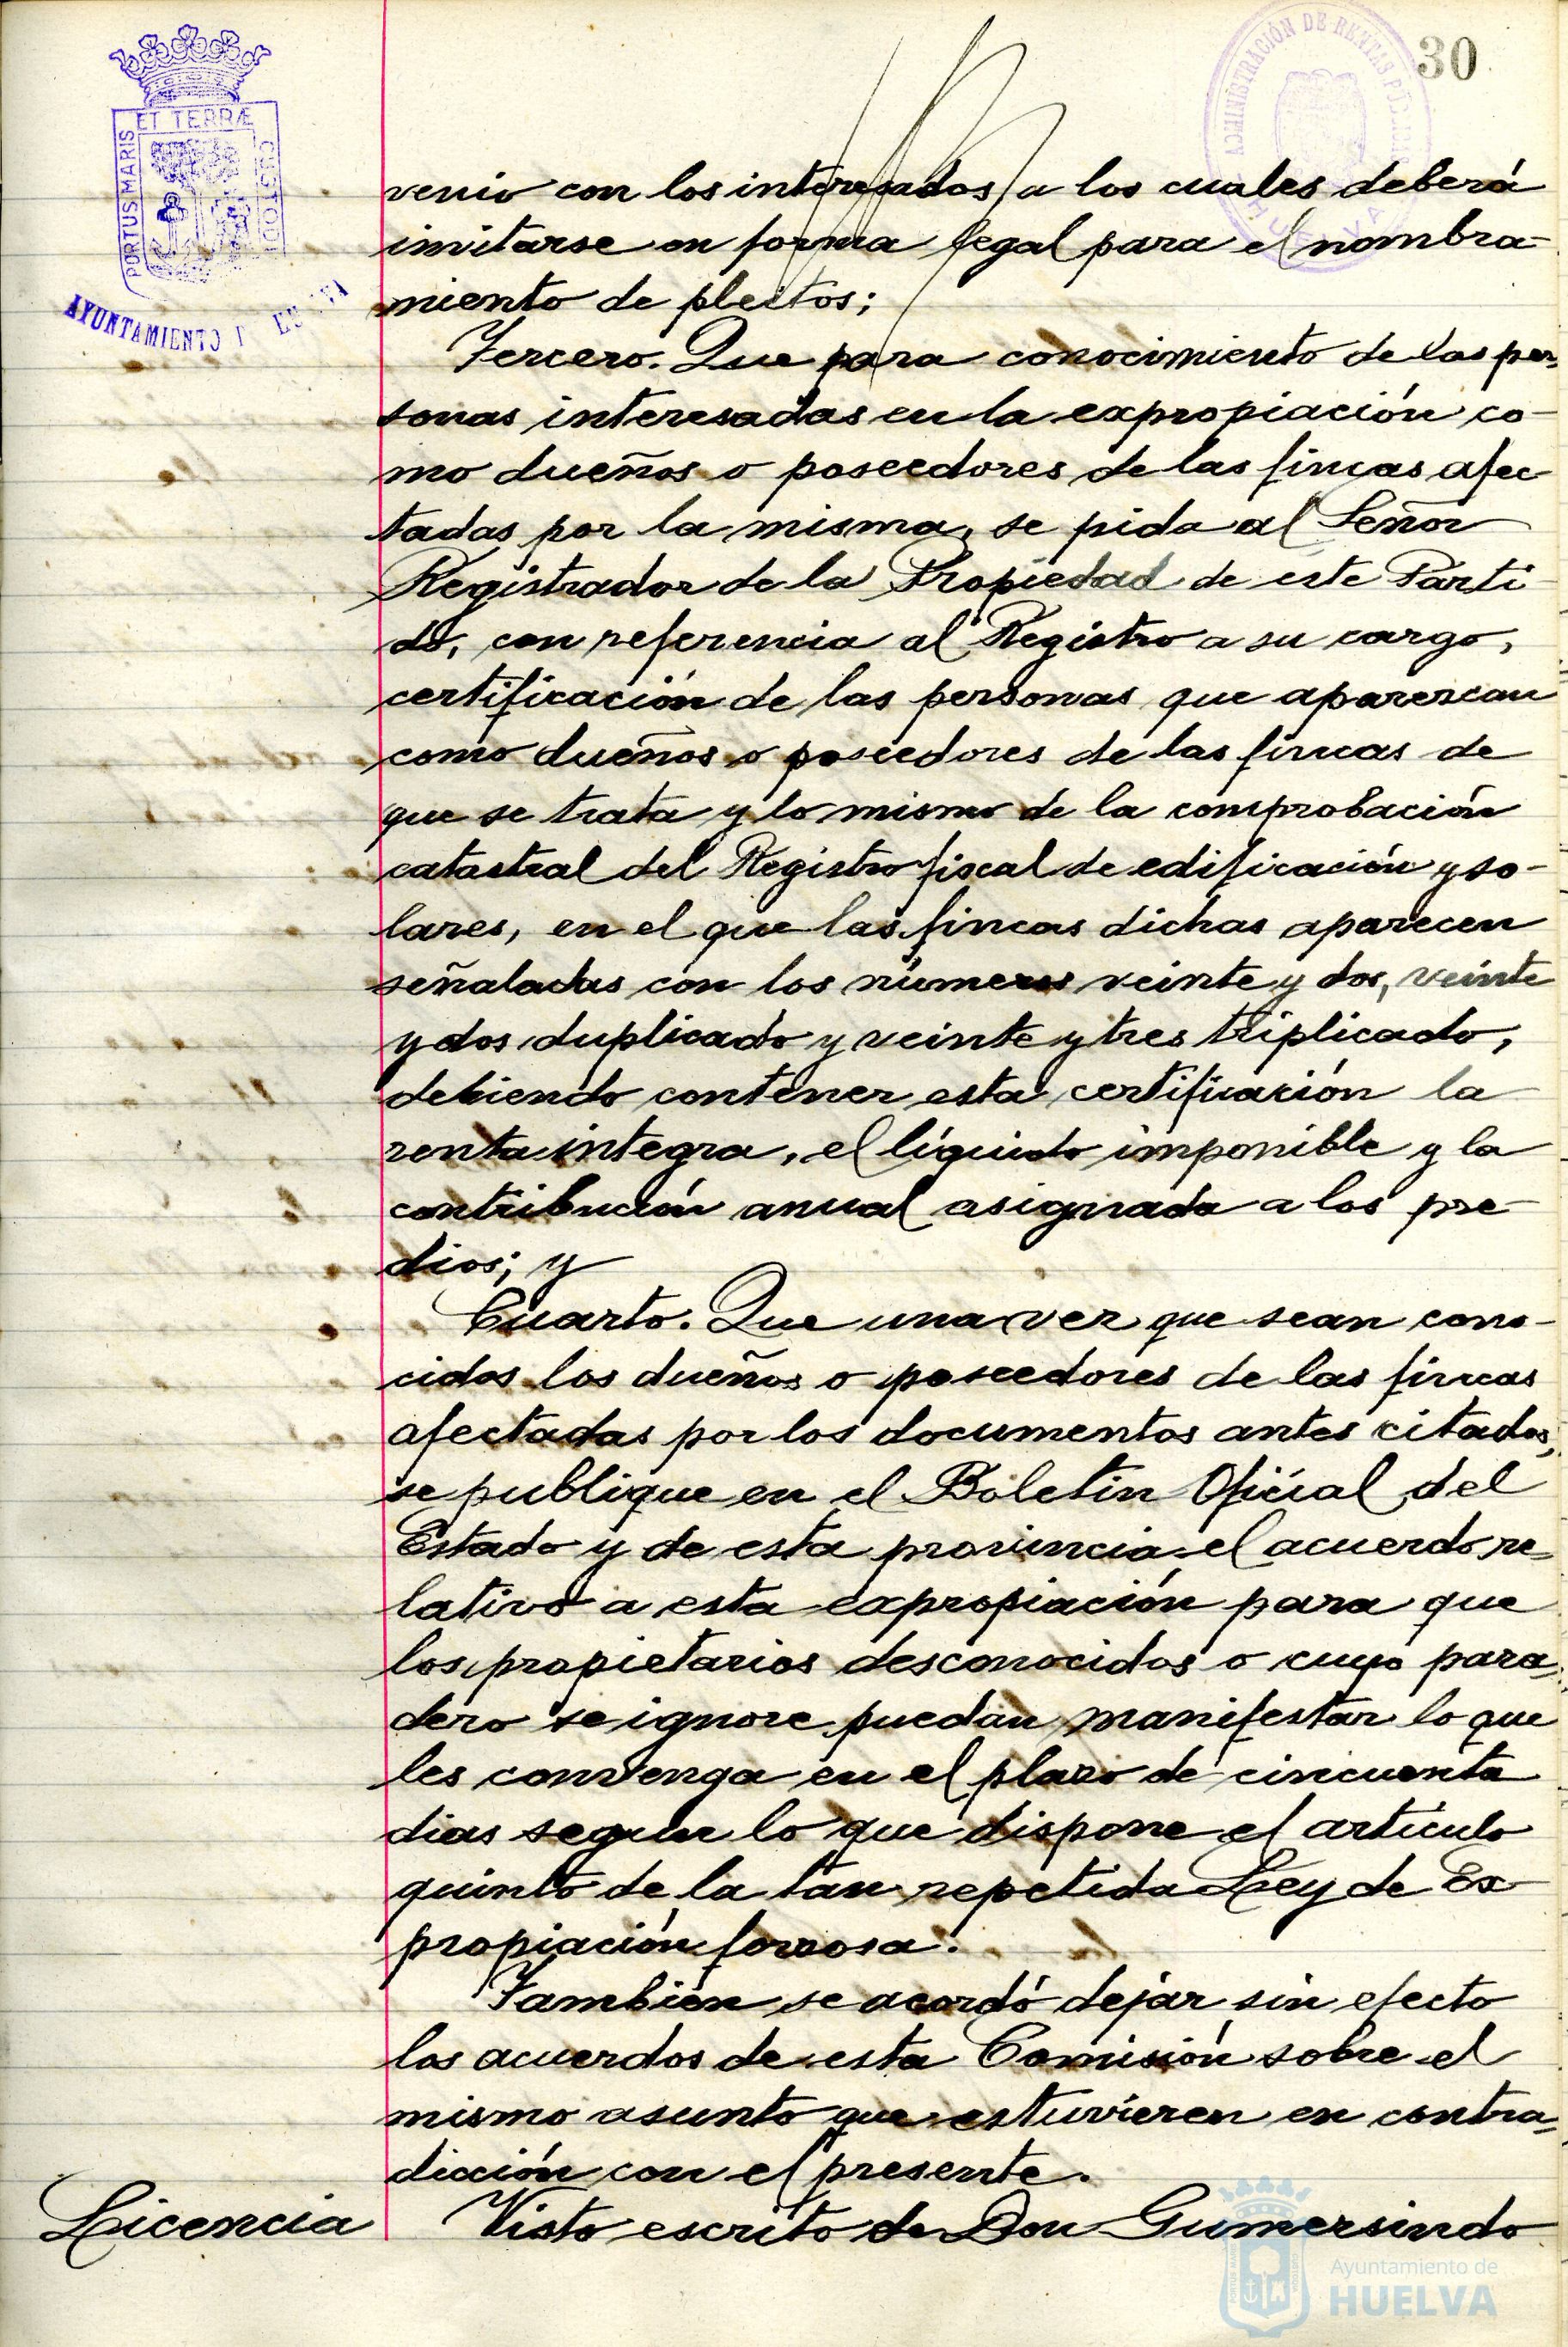 30
ADMINISTRACIÓN DE RENTAS
HUELVA
ET TERRÆ
PORTUS MARIS
CUSTODI
AYUNTAMIENTO
venio con los interesados a los cuales deberá
invitarse en forma legal para el nombra-
miento de pleitos;
Tercero. Que para conocimiento de las per-
sonas interesadas en la expropiación co-
mo dueños o poseedores de las fincas afec-
tadas por la misma, se pida al Señor
Registrador de la Propiedad de este Parti-
do, con referencia al Registro a su cargo,
certificación de las personas que aparezcan
como dueños o poseedores de las fincas de
que se trata y lo mismo de la comprobación
catastral del Registro fiscal de edificación y so-
lares, en el que las fincas dichas aparecen
señaladas con los números veinte y dos, veinte
y dos duplicado y veinte y tres triplicado,
debiendo contener esta certificación la
renta integra, el líquido imponible y la
contribución anual asignada a los pre-
dios; y
Cuarto. Que una vez que sean cono-
cidos los dueños o poseedores de las fincas
afectadas por los documentos antes citados,
se publique en el Boletin Oficial del
Estado y de esta provincia el acuerdo re-
lativo a esta expropiación para que
los propietarios desconocidos o cuyo para-
dero se ignore puedan manifestar lo que
les convenga en el plazo de cincuenta
dias segun lo que dispone el articulo
quinto de la tan repetida Ley de Ex-
propiación forzosa.
También se acordó dejar sin efecto
los acuerdos de esta Comisión sobre el
mismo asunto que estuvieren en contra-
dicción con el presente.
Licencia Visto escrito de Don Gumersindo
Ayuntamiento de
HUELVA